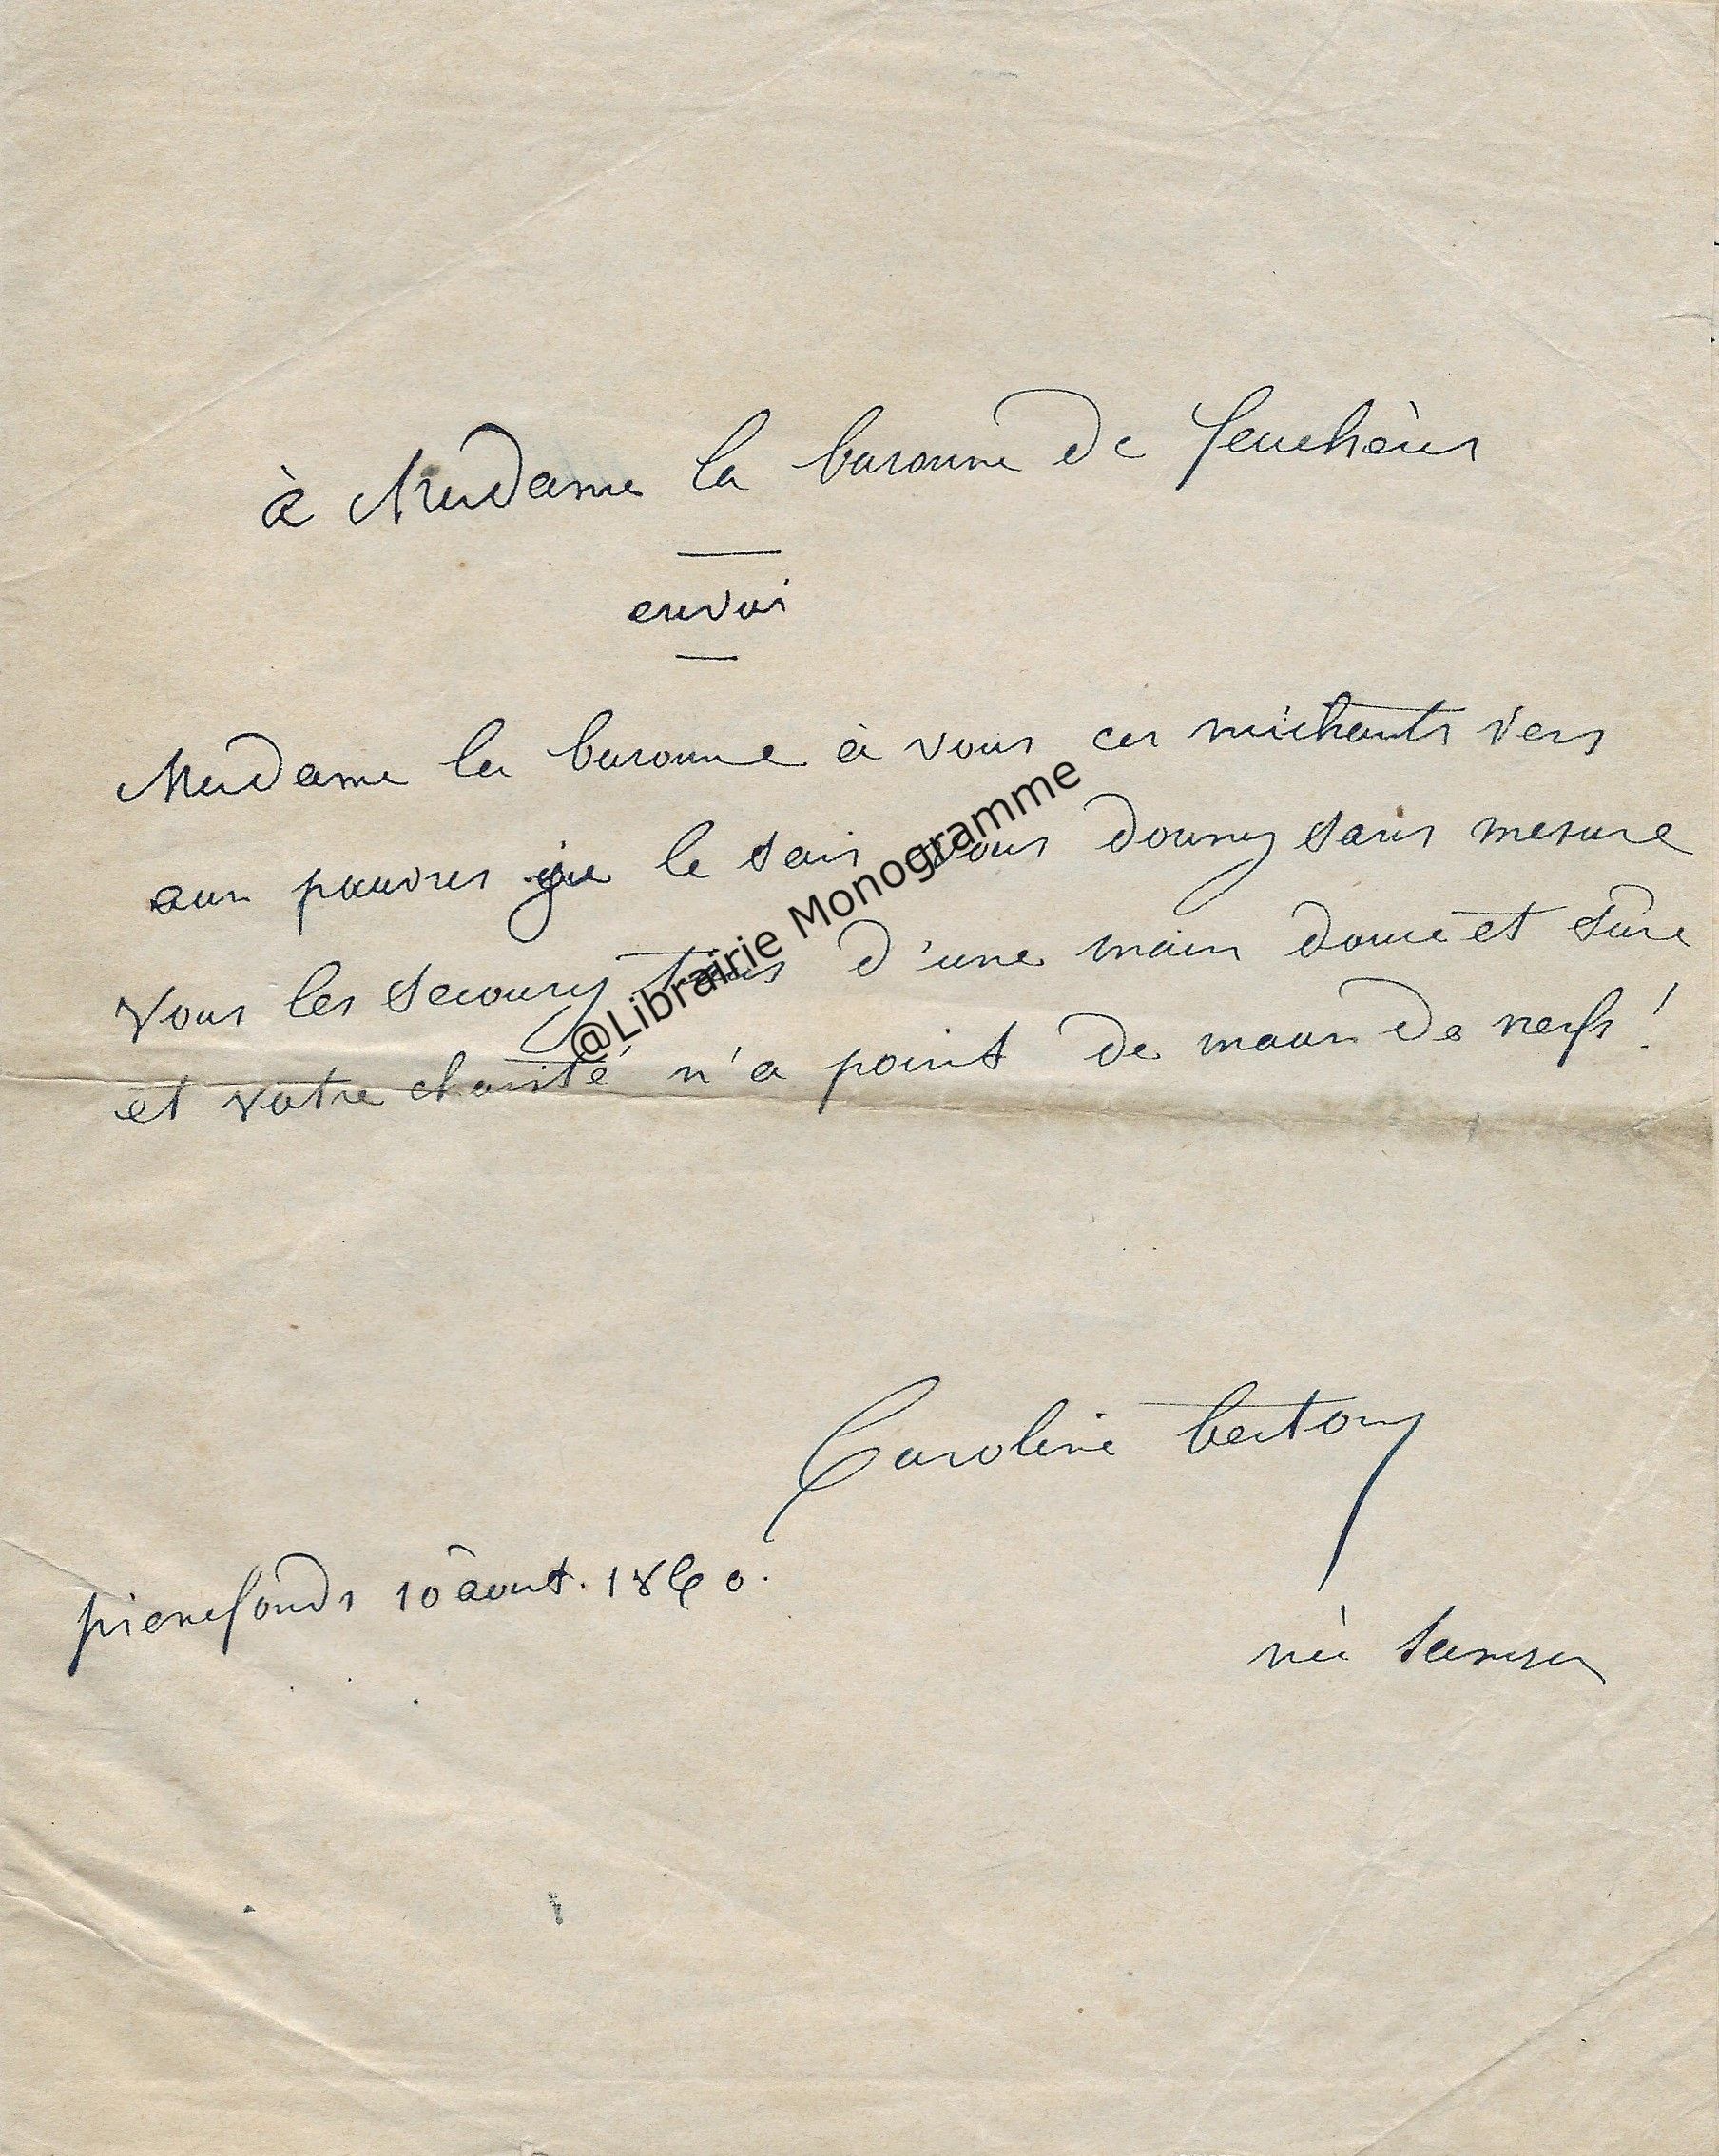 à Madame la baronne de feuchères
envoi
Madame la baronne à vous ces méchants vers
aux pauvres je le sais vous donnez sans mesure
vous les secourez tous d'une main douce et sûre
et votre charité n'a point de maux de nerfs !
@Librairie Monogramme
Caroline berton
pierrefonds 10 août. 1860.
née Samson